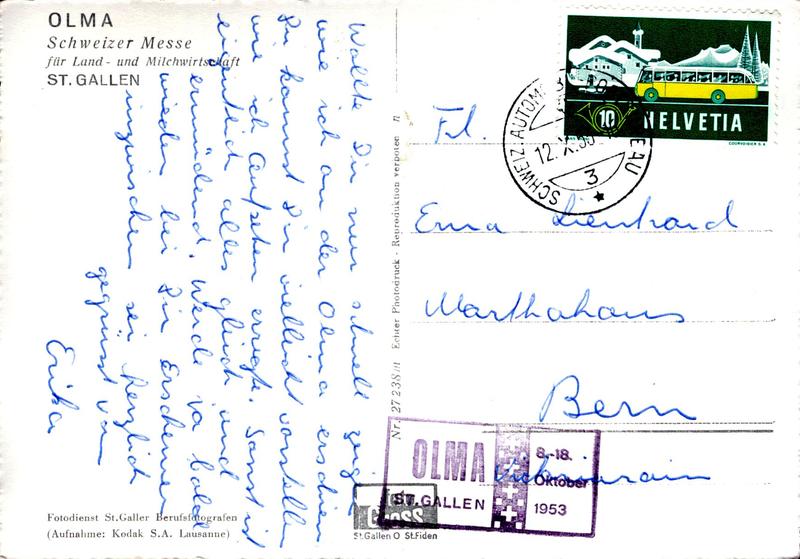 OLMA
Schweizer Messe
für Land- und Milchwirtschaft
ST. GALLEN
Wollte Dir nur schnell zeigen
wie ich an der Olma erschien
Du kannst Dir vielleicht vorstellen
wie ich Aufsehen erregte. Sonst ist
eigentlich alles gleich und
ermüdend. Werde ja bald
wieder bei Dir Erscheinen
inzwischen sei herzlich
gegrüsst von
Erika
Fotodienst St. Galler Berufsfotografen
(Aufnahme: Kodak S.A. Lausanne)
Nr. 27 238/11 Echter Photodruck - Reproduktion verboten
Foto
GROSS
St. Gallen O St. Fiden
HELVETIA
10
COURVOISIER S.A.
SCHWEIZ. AUTOM
EAU
12. X. 53
3
Frl.
Erna Lienhard
Marthahaus
Bern
Viktoriarain
OLMA
ST. GALLEN
8.-18.
Oktober
1953